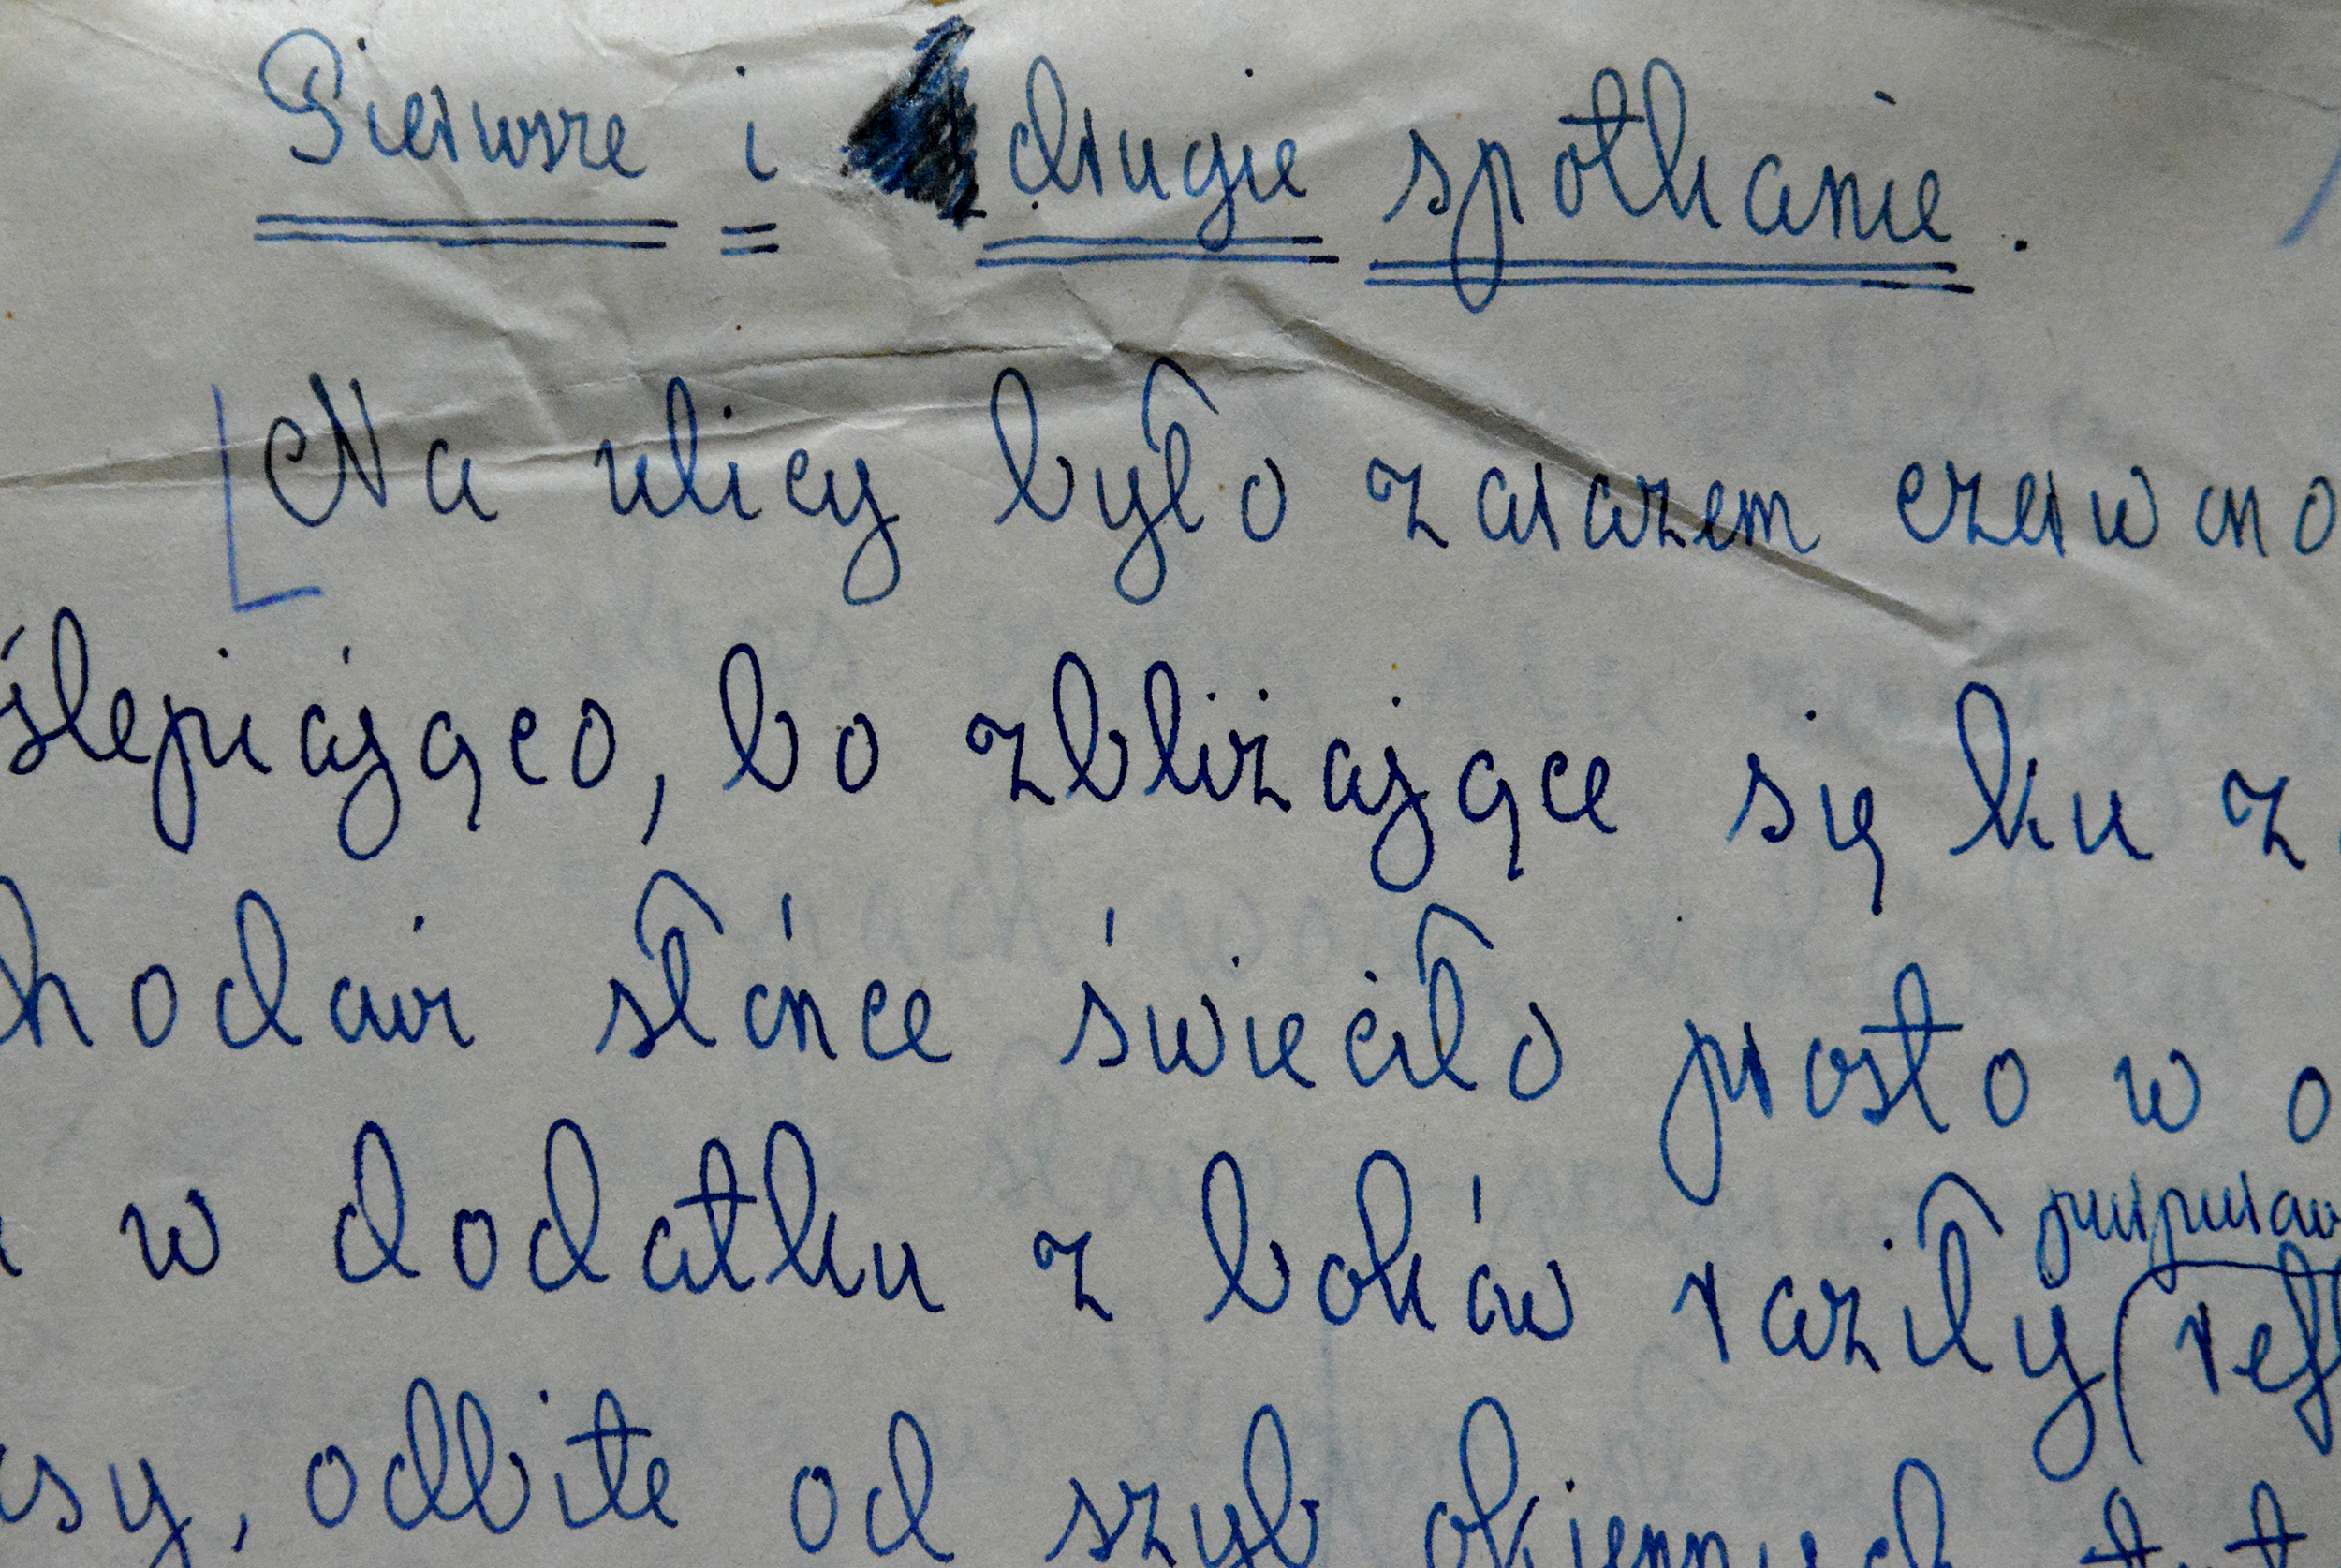 Pierwsze i drugie spotkanie.
Na ulicy było zarazem czerwono
ślepiająco, bo zbliżające się ku z
hodowi słońce świeciło prosto w o
w dodatku z boków raziły
odbite od szyb okiennych